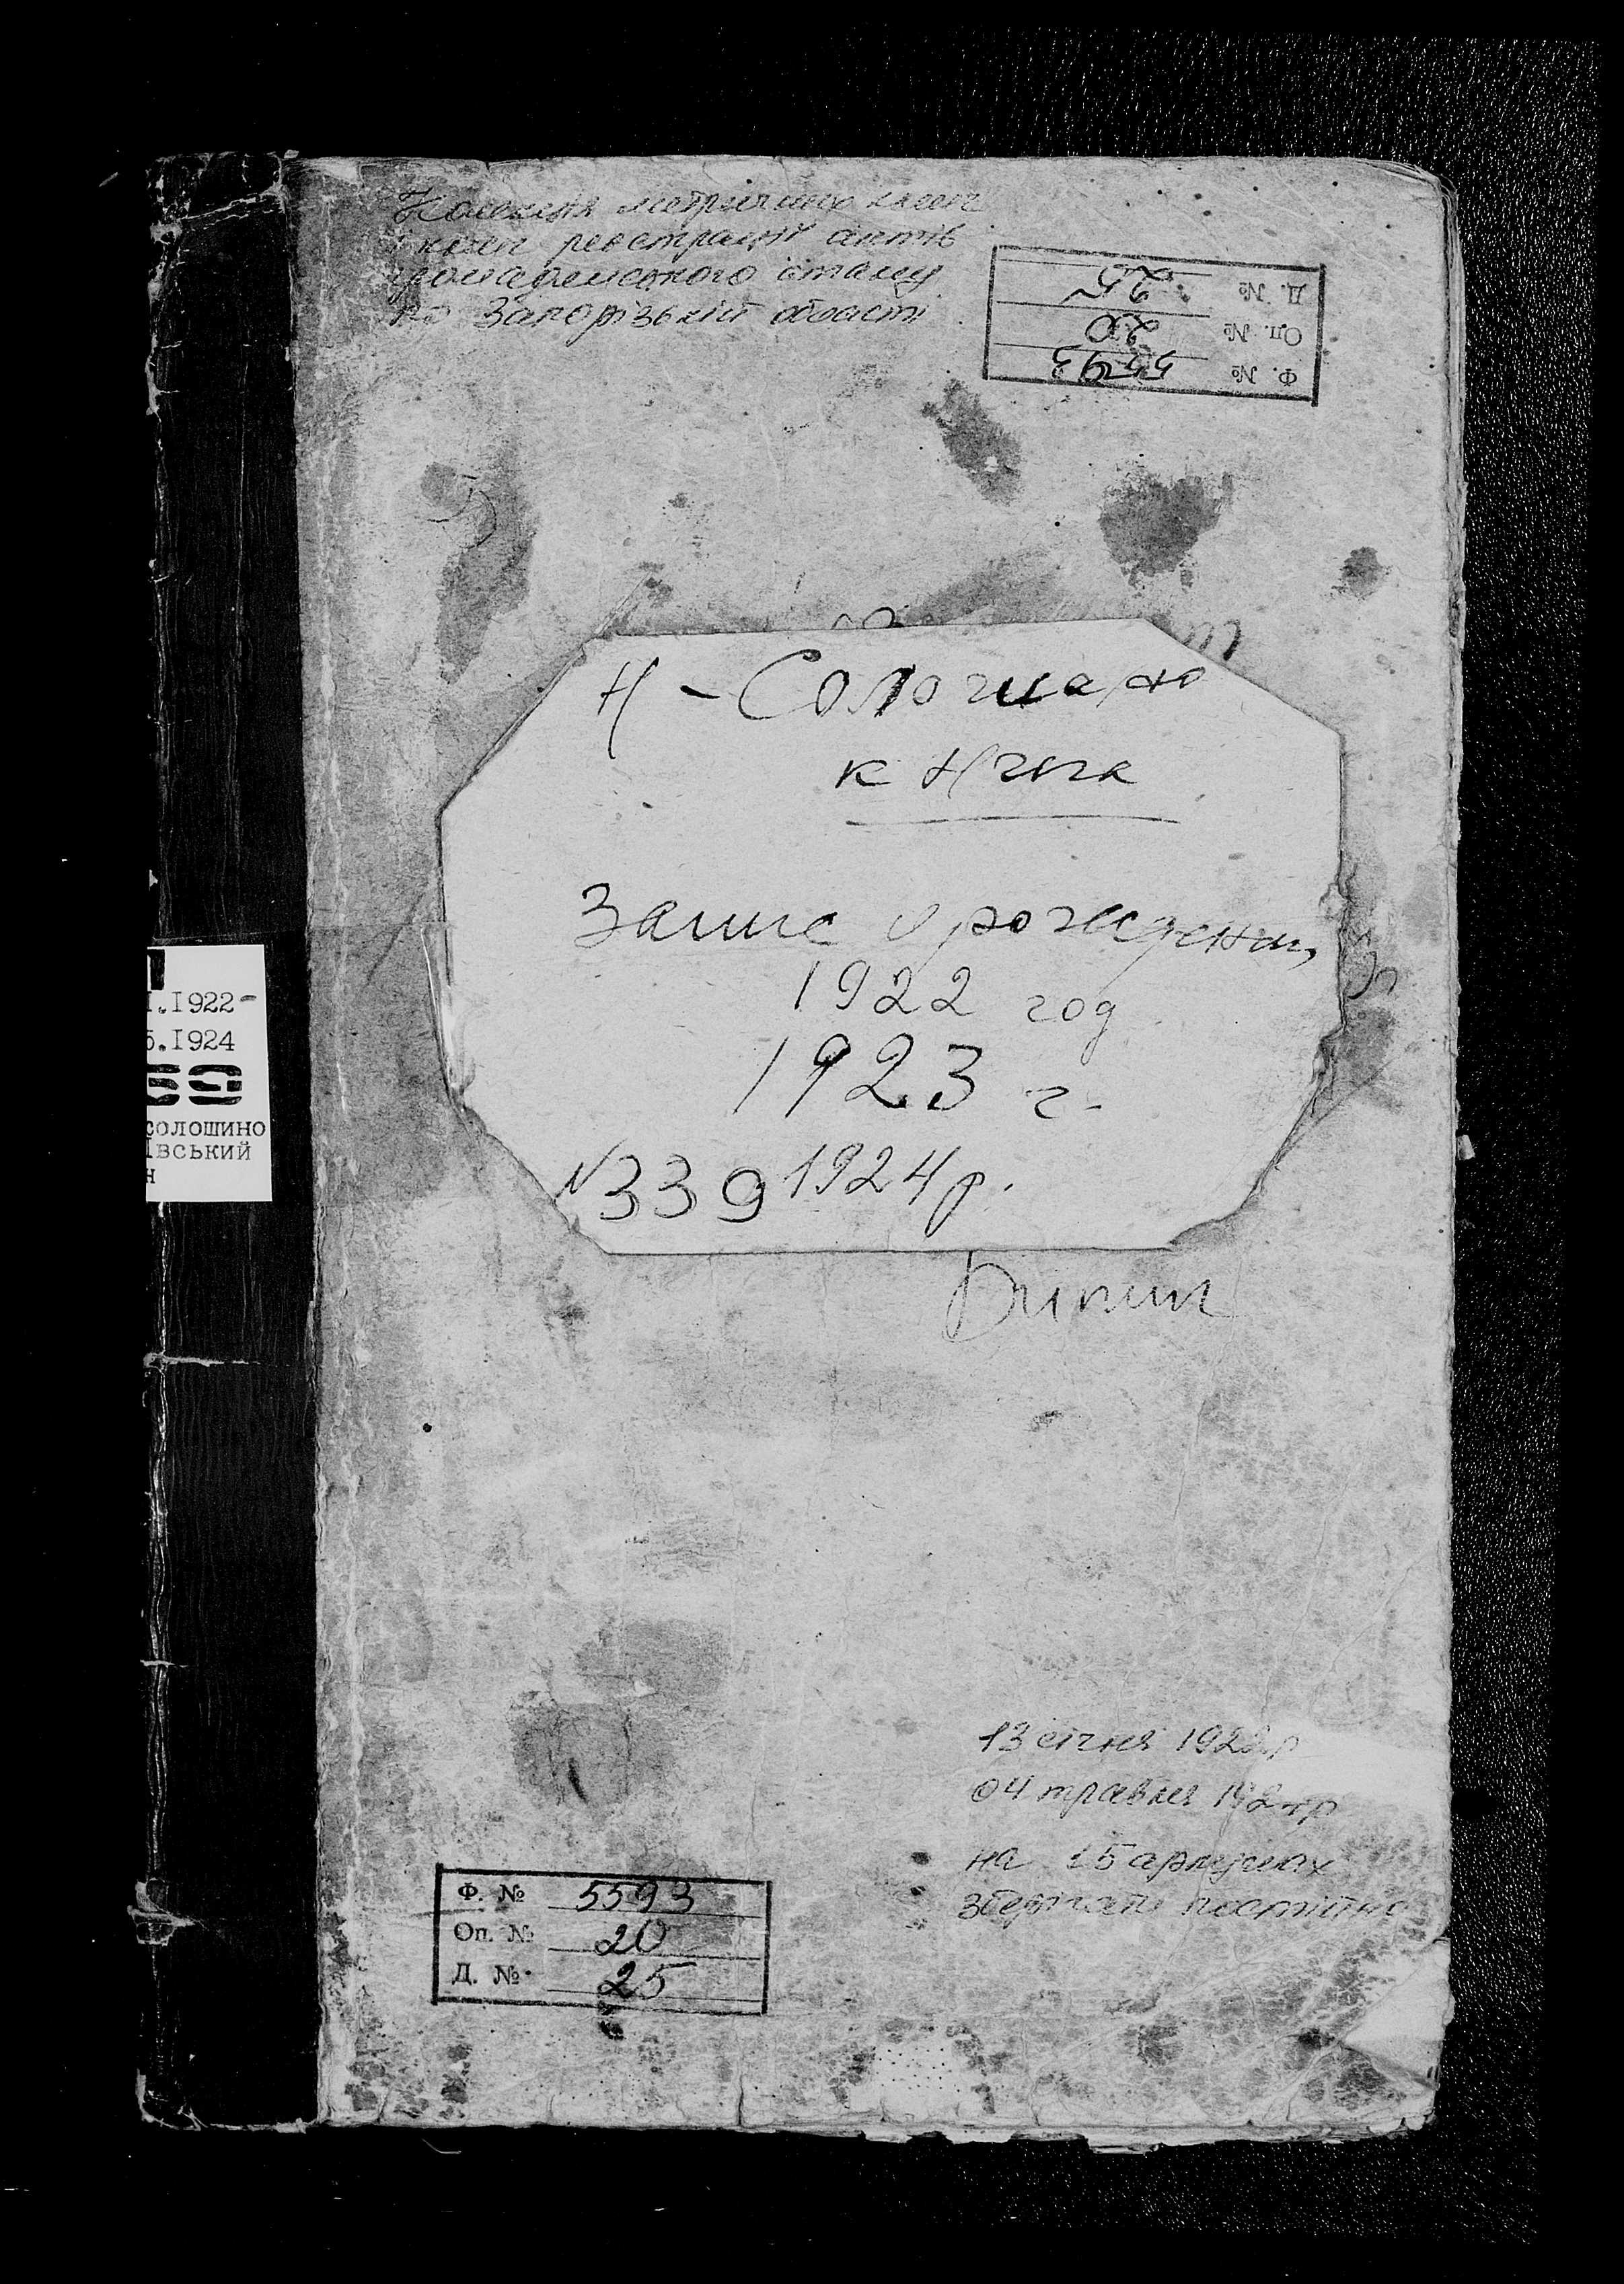 Колекція метричних книг
і книг реєстрації актів
громадянського стану
по Запорізькій області
Ф. № 5593
Оп. № 20
Д. № 25
Н-Солошино
книга
Запись о рождении,
1922 год
1923 г.
N339 1924р.
I.I922-
5.I924
39
солошино
івський
н
13 січня 1922р
04 травня 1924р
на 15 аркушах
зберігати постійно
Ф. № 5593
Оп. № 20
Д. № 25